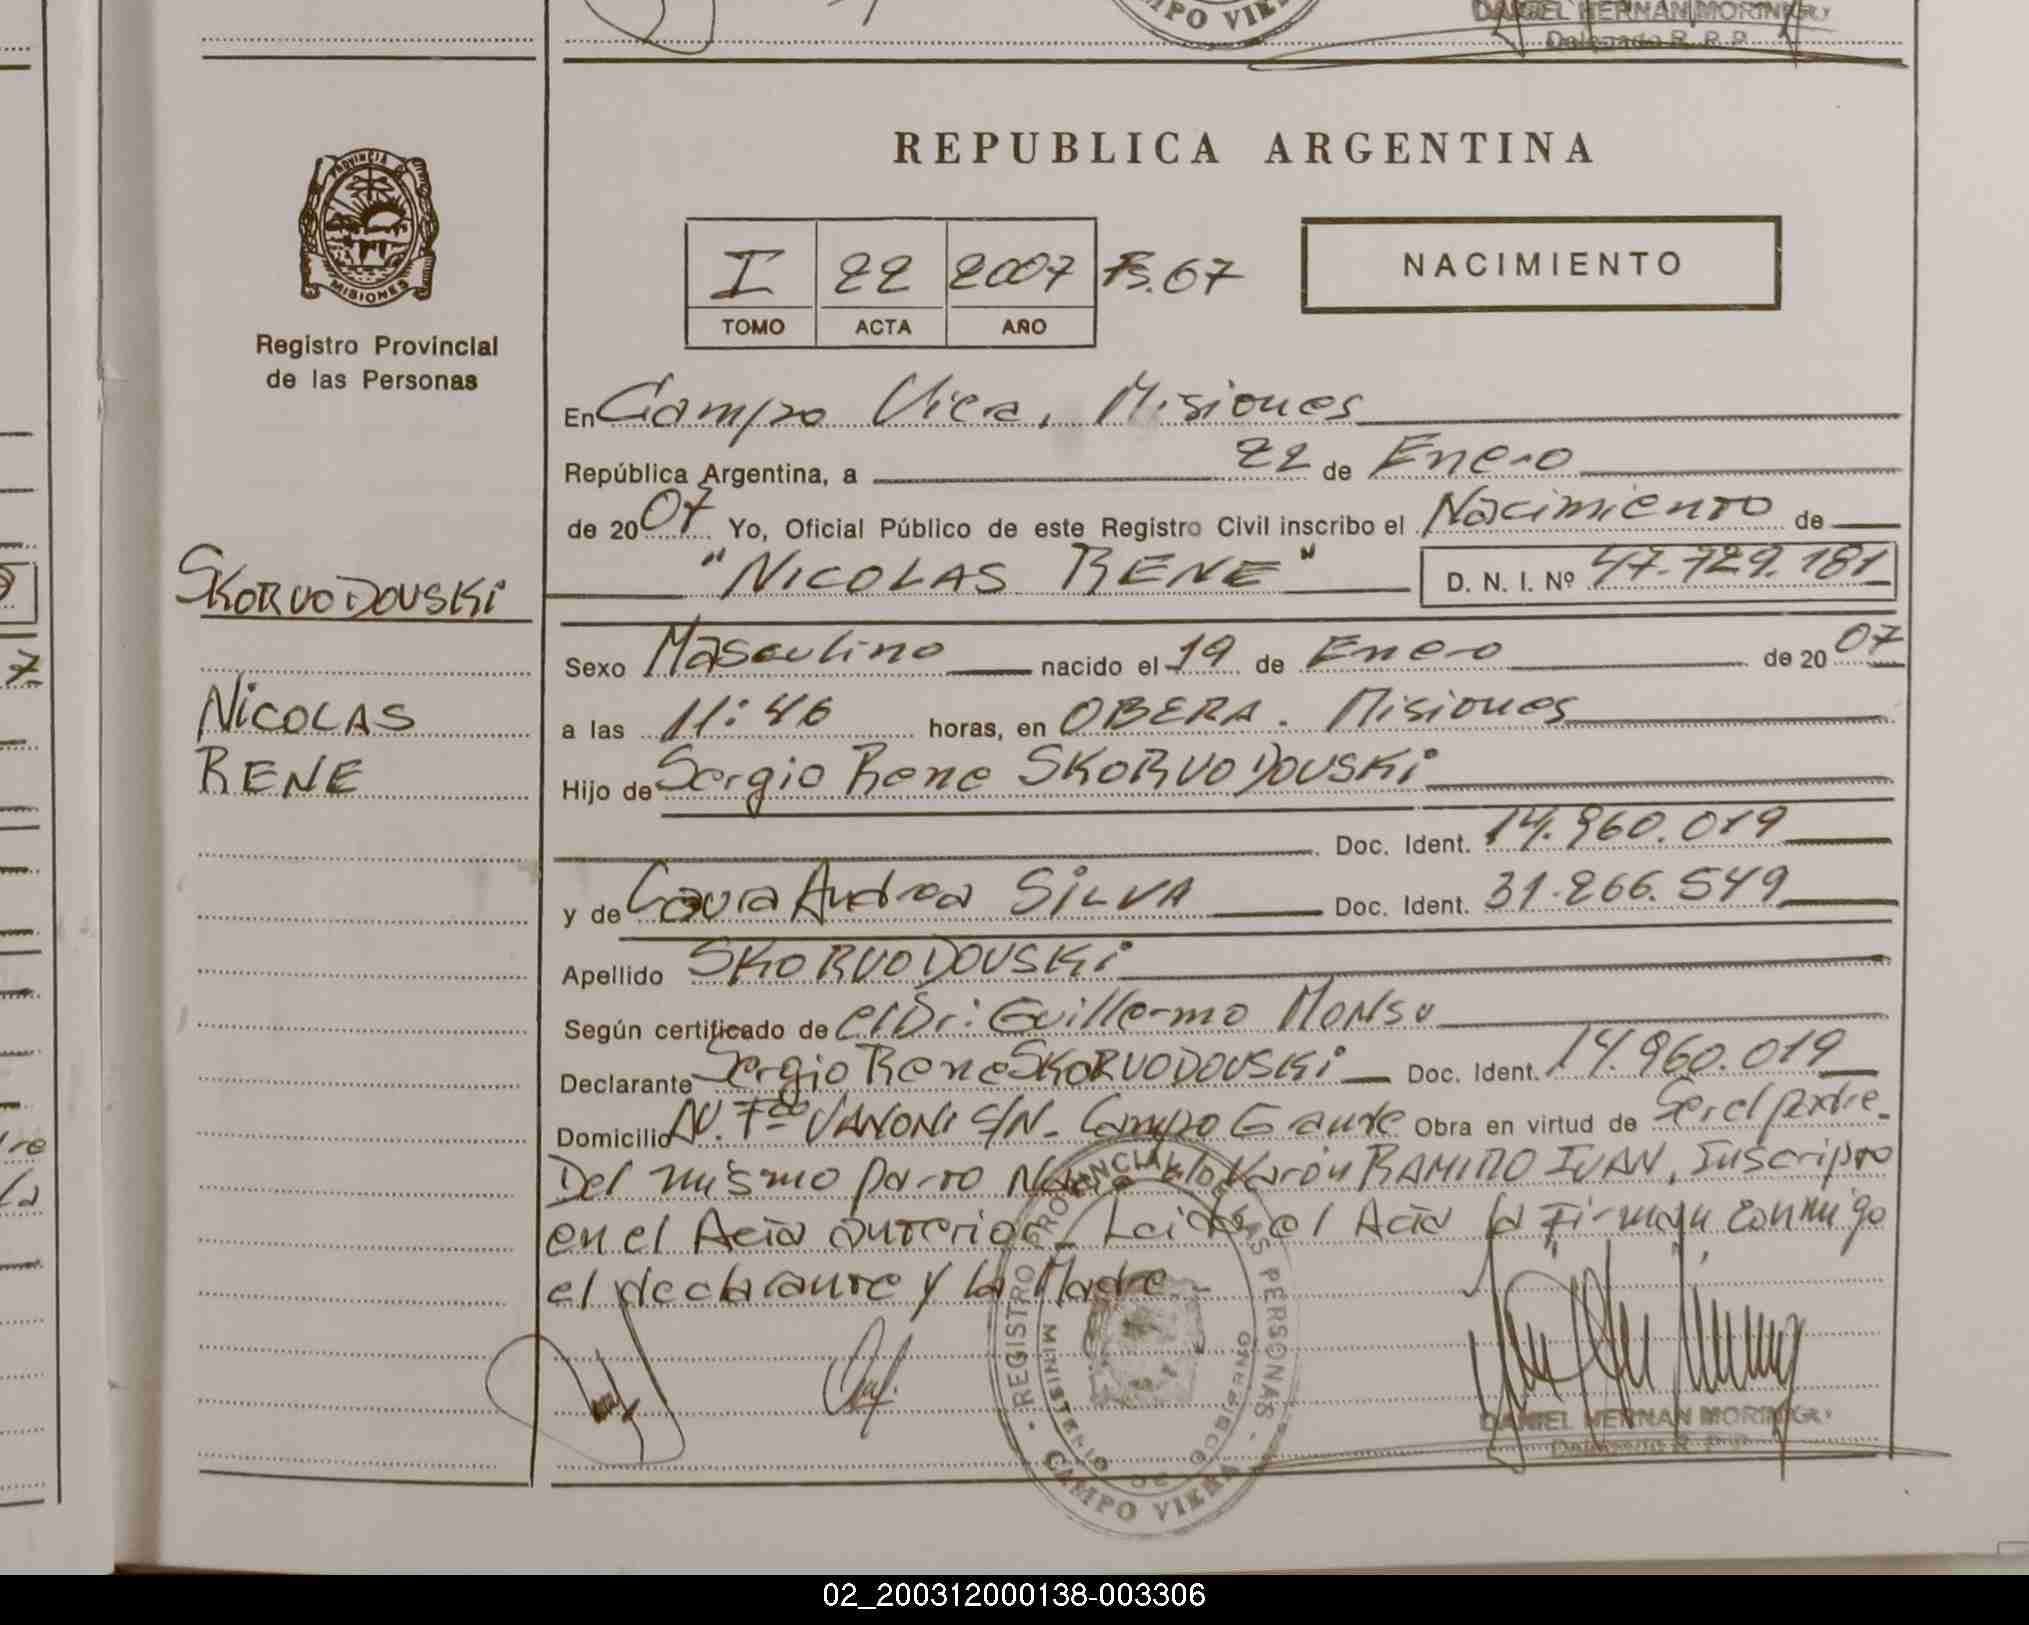 CAMPO VIERA
DANIEL HERNAN MORINIGO
Delegado R. P. P.
PROVINCIA DE
MISIONES
Registro Provincial
de las Personas
REPUBLICA ARGENTINA
I 22 2007 Fs. 67
TOMO ACTA AÑO
NACIMIENTO
En Campo Viera, Misiones
República Argentina, a 22 de Enero
de 2007 Yo, Oficial Público de este Registro Civil inscribo el Nacimiento de
"NICOLAS RENE" D. N. I. Nº 47.729.181
SKORVODOVSKi
NiCOLAS
RENE
Sexo Masculino nacido el 19 de Enero de 2007
a las 11:46 horas, en OBERA. Misiones
Hijo de Sergio Rene SKORVODOVSKi
Doc. Ident. 14.960.019
y de Laura Andrea SiLVA Doc. Ident. 31.266.549
Apellido SKORVODOVSKi
Según certificado de el Dr: Guillermo MONSU
Declarante Sergio Rene SKORVODOVSKi Doc. Ident. 14.960.019
Domicilio AV. Fco VANONi S/N- Campo Grande Obra en virtud de Ser el padre.
Del mismo parto Nació el Varón RAMIRO IVAN, Inscripto
en el Acta anterior. Leida el Acta la Firman conmigo
el declarante y la Madre.-
REGISTRO PROVINCIAL DE LAS PERSONAS
MINISTERIO DE GOBIERNO
CAMPO VIERA
DANIEL HERNAN MORINIGO
Delegado R. P. P.
02_200312000138-003306